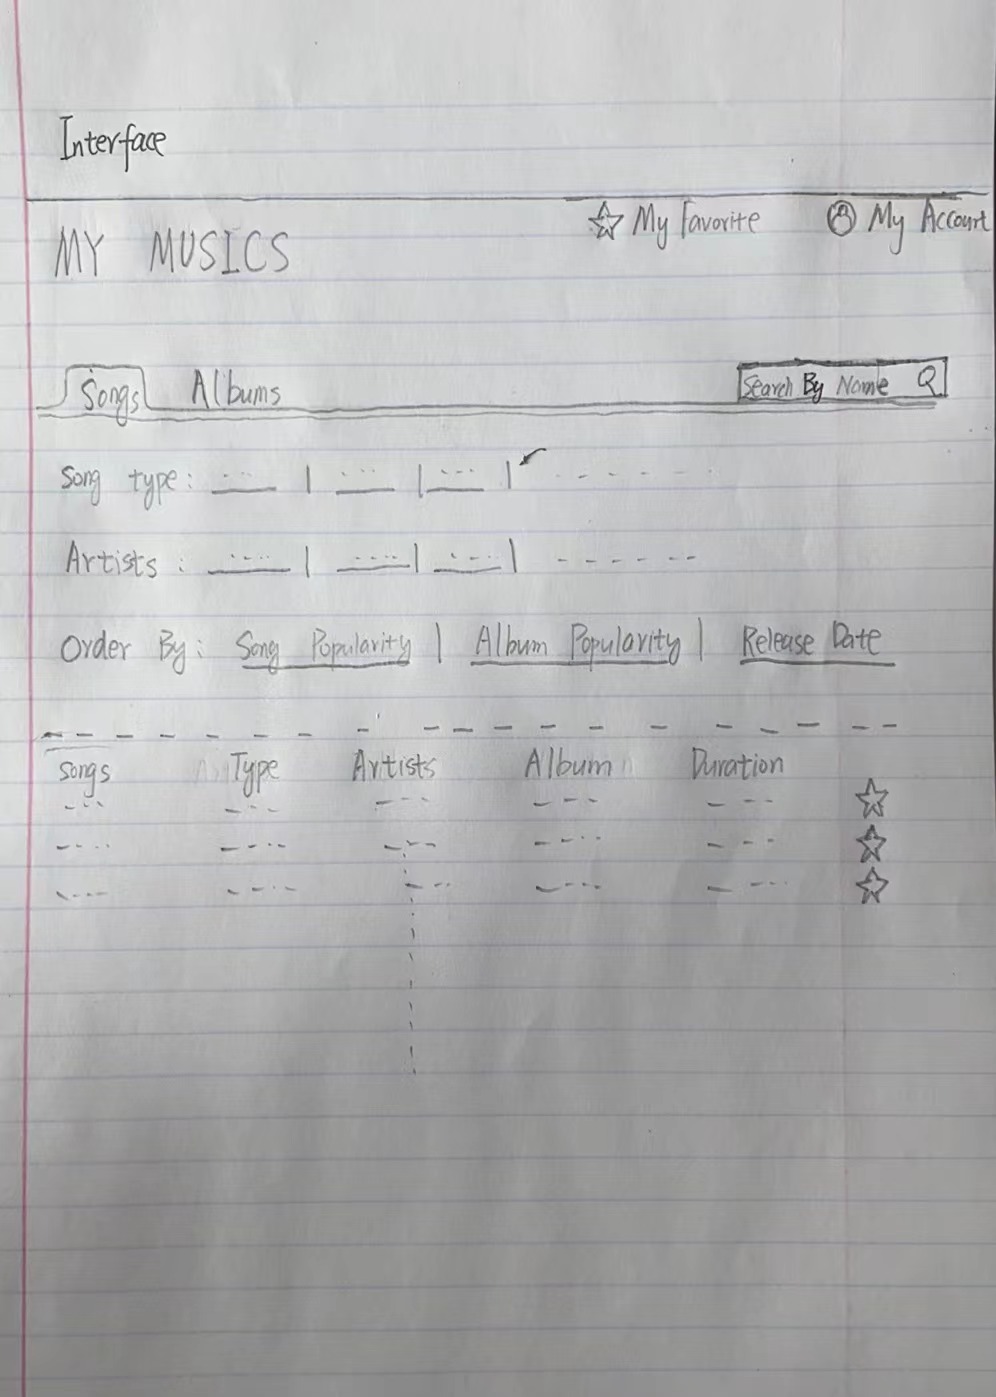 Interface
MY MUSICS My Favorite My Account
Songs Albums Search By Name
Song type:
Artists :
Order By: Song Popularity | Album Popularity | Release Date
Songs Type Artists Album Duration